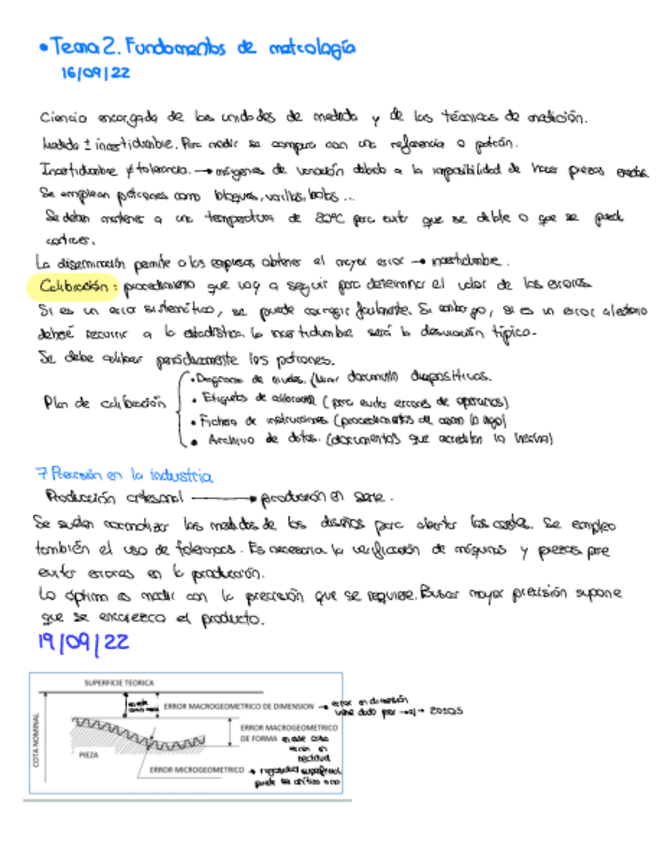 • Tema 2. Fundamentos de metrología
16/09/22
Ciencia encargada de las unidades de medida y de las técnicas de medición.
Medida ± incertidumbre. Para medir se compara con una referencia o patrón.
Incertidumbre ≠ tolerancia. → márgenes de variación debido a la imposibilidad de hacer piezas exactas.
Se emplean patrones como bloques, varillas, bolas...
Se deben mantener a una temperatura de 20ºC para evitar que se doble o que se pueda
contraer.
La diseminación permite a las empresas obtener el mayor error → incertidumbre.
Calibración: procedimiento que voy a seguir para determinar el valor de los errores.
Si es un error sistemático, se puede corregir fácilmente. Si embargo, si es un error aleatorio
deberé recurrir a la estadística. La incertidumbre será la desviación típica.
Se debe calibrar periódicamente los patrones.
Plan de calibración
• Diagrama de niveles. (Mirar documento diapositivas.
• Etiquetas de calibración (para evitar errores de operarios)
• Fichero de instrucciones (procedimientos de como lo hago)
• Archivo de datos. (documentos que acreditan lo hecho)
7 Precisión en la industria
Producción artesanal → producción en serie.
Se suelen normalizar las medidas de los diseños para abaratar los costes. Se emplea
también el uso de tolerancias. Es necesaria la verificación de máquinas y piezas para
evitar errores en la producción.
Lo óptimo es medir con la precisión que se requiere. Buscar mayor precisión supone
que se encarezca el producto.
19/09/22
SUPERFICIE TEORICA
COTA NOMINAL
ERROR MACROGEOMETRICO DE DIMENSION → error en dimensión
viene dado por
ERROR MACROGEOMETRICO
DE FORMA en este caso
error en
rectitud
PIEZA
ERROR MICROGEOMETRICO → rugosidad superficial,
puede ser crítico o no